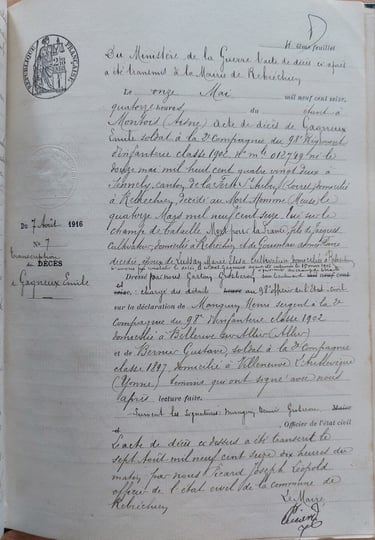 D
4ème feuillet
RÉPUBLIQUE FRANÇAISE
Du Ministère de la Guerre l'acte de décès ci après
a été transmis à la Mairie de Rebréchien
Le onze Mai mil neuf cent seize,
quatorze heures, du étant à
Acte de décès de Gagneux
Emile soldat à la 2e Compagnie du 98e Régiment
d'infanterie classe 1902 Mle 012789 né le
douze mai mil huit cent quatre vingt deux à
Sennely, canton de la Ferté St Aubin, (Loiret) domicilié
à Rebréchien, décédé au Mort Homme (Meuse) le
quatorze Mars mil neuf cent seize, tué sur le
champ de bataille Mort pour la France, fils de Jacques
cultivateur, domicilié à Rebréchien et de
décédée, époux de Marie Elisa
Dressé par nous Gaston
chargé des détails au 98e officier de l'Etat civil
sur la déclaration de Monguy Denis sergent à la 2e
Compagnie du 98e d'infanterie classe 1902
domicilié à Bellerive sur Allier (Allier)
et de Bernier Gustave, soldat à la 2e Compagnie
classe 1897, domicilié à Villeneuve l'Archevêque
(Yonne) témoins qui ont signé avec nous
après lecture faite.
Suivent les signatures
, Officier de l'état civil
L'acte de décès ci dessus a été transcrit le
sept Août mil neuf cent seize dix heures du
matin, par nous Picard Joseph Léopold
officier de l'état civil de la commune de
Rebréchien
Le Maire,
Du 7 Août 1916
No 7
transcription
de DÉCÈS
de Gagneux Emile